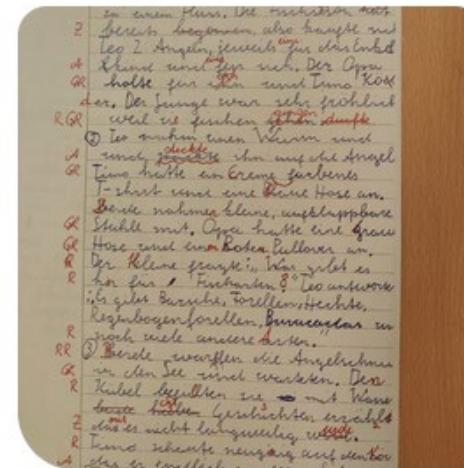 in einem Fluss. Die Fischsaison hat
Z bereits begonnen, also kaufte sich
Leo 2 Angeln, jeweils für das Enkel
A kind und eine für sich. Der Opa
GR holte für ihn und Timo Köd
der. Der Junge war sehr fröhlich
R GR weil sie fischen gehen durfte
② Leo nahm einen Wurm und
A und steckte ihn auf die Angel
GR Timo hatte ein Creme farbenes
T-shirt und eine Blaue Hose an.
Beide nahmen kleine, aufklappbare
GR Stühle mit. Opa hatte eine graue
GR Hose und einen Roten Pullover an.
R Der Kleine fragte: „Was gibt es
R hör für " Fischarten?" Leo antworte
„Es gibt Barsche, Forellen, Hechte,
Regenbogenforellen,
R noch viele andere Arten.
RR ③ Beide warffen die Angelschnu
GR in den See und warteten. Den
R Kübel befüllten sie mit Wasse
Geschichten erzählt
Z das es nicht langweilig wurde.
R Timo schaute neugirig auf den Kö
A das er